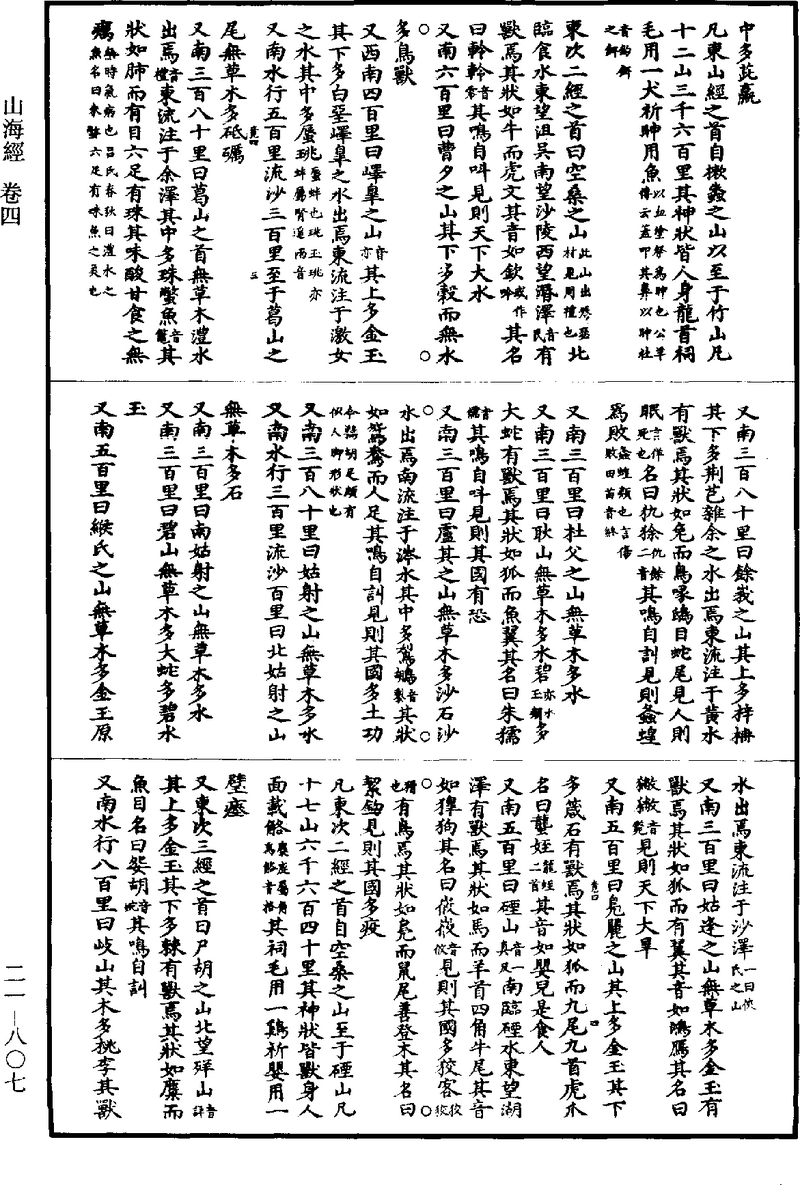 山海經 卷四
二一—八〇七
中多茈蠃
凡東山經之首自樕𧑤之山以至于竹山凡
十二山三千六百里其神狀皆人身龍首祠
毛用一犬祈胂用魚以血塗祭為胂也公羊傳云蓋叩其鼻以胂社
音釣餌之餌
東次二經之首曰空桑之山此山出琴瑟材見周禮也北
臨食水東望沮吳南望沙陵西望湣澤音民有
獸焉其狀如牛而虎文其音如欽或作吟其名
曰軨軨音零其鳴自叫見則天下大水
又南六百里曰曹夕之山其下多穀而無水
多鳥獸
又西南四百里曰嶧皐之山音亦其上多金玉
其下多白堊嶧皐之水出焉東流注于激女
之水其中多蜃珧蜃蚌也珧玉珧亦蚌屬腎遥兩音
又南水行五百里流沙三百里至于葛山之
尾無草木多砥礪
又南三百八十里曰葛山之首無草木澧水
出焉音禮東流注于余澤其中多珠蟞魚音鼈其
狀如肺而有目六足有珠其味酸甘食之無
癘無時氣病也呂氏春秋曰澧水之魚名曰朱蟞六足有珠魚之美也
又南三百八十里曰餘峩之山其上多梓柟
其下多荆芑雜余之水出焉東流注于黃水
有獸焉其狀如兔而鳥喙鴟目蛇尾見人則
眠言佯死也名曰犰狳仇餘二音其鳴自訓見則螽蝗
為敗螽蝗類也言傷敗田苗音終
又南三百里曰杜父之山無草木多水
又南三百里曰耿山無草木多水碧亦水玉類多
大蛇有獸焉其狀如狐而魚翼其名曰朱獳
音儒其鳴自叫見則其國有恐
又南三百里曰盧其之山無草木多沙石沙
水出焉南流注于涔水其中多鵹鶘音黎其狀
如鴛鴦而人足其鳴自訓見則其國多土功
今鵜胡足頗有似人脚形狀也
又南三百八十里曰姑射之山無草木多水
又南水行三百里流沙百里曰北姑射之山
無草木多石
又南三百里曰南姑射之山無草木多水
又南三百里曰碧山無草木多大蛇多碧水
玉
又南五百里曰緱氏之山無草木多金玉原
水出焉東流注于沙澤一曰俠氏之山
又南三百里曰姑逢之山無草木多金玉有
獸焉其狀如狐而有翼其音如鴻鴈其名曰
獙獙音斃見則天下大旱
又南五百里曰鳧麗之山其上多金玉其下
多箴石有獸焉其狀如狐而九尾九首虎爪
名曰蠪姪龍蛭二音其音如嬰兒是食人
又南五百里曰䃌山音一真反南臨䃌水東望湖
澤有獸焉其狀如馬而羊首四角牛尾其音
如獆狗其名曰峳峳音攸見則其國多狡客狡狡
猾也有鳥焉其狀如鳧而鼠尾善登木其名曰
絜鉤見則其國多疫
凡東次二經之首自空桑之山至于䃌山凡
十七山六千六百四十里其神狀皆獸身人
面載觡麋鹿屬角為觡音格其祠毛用一鷄祈嬰用一
璧瘞
又東次三經之首曰尸胡之山北望𣦸山音詳
其上多金玉其下多棘有獸焉其狀如麋而
魚目名曰妴胡音婉其鳴自訓
又南水行八百里曰岐山其木多桃李其獸